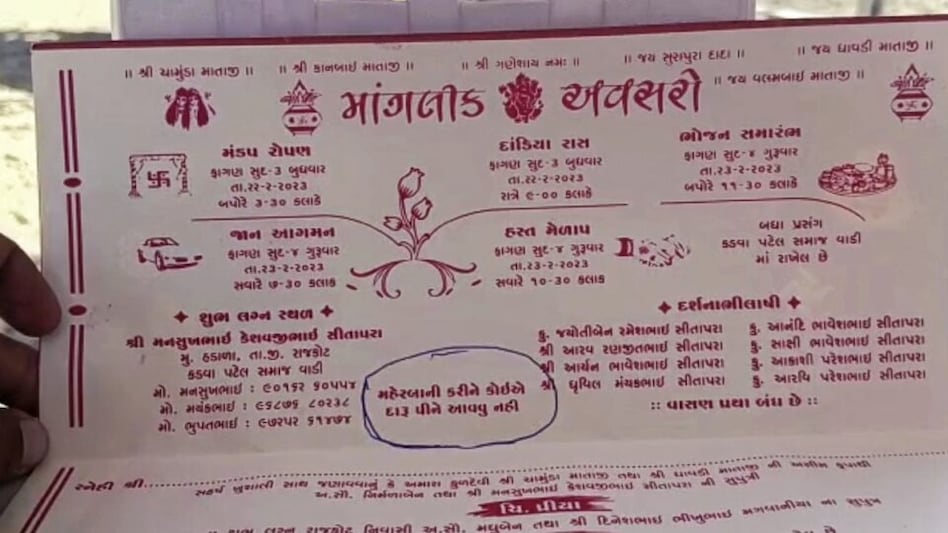 || શ્રી ચામુંડા માતાજી ||
|| શ્રી કાનબાઈ માતાજી ||
|| શ્રી ગણેશાય નમઃ ||
|| જય સુરાપુરા દાદા ||
|| જય ધાવડી માતાજી ||
|| જય વલમબાઈ માતાજી ||
માંગલીક અવસરો
મંડપ રોપણ
ફાગણ સુદ-૩ બુધવાર
તા.૨૨-૨-૨૦૨૩
બપોરે ૩-૩૦ કલાકે
દાંડિયા રાસ
ફાગણ સુદ-૩ બુધવાર
તા.૨૨-૨-૨૦૨૩
રાત્રે ૯-૦૦ કલાકે
ભોજન સમારંભ
ફાગણ સુદ-૪ ગુરૂવાર
તા.૨૩-૨-૨૦૨૩
બપોરે ૧૧-૩૦ કલાકે
જાન આગમન
ફાગણ સુદ-૪ ગુરૂવાર
તા.૨૩-૨-૨૦૨૩
સવારે ૭-૩૦ કલાક
હસ્ત મેળાપ
ફાગણ સુદ-૪ ગુરૂવાર
તા.૨૩-૨-૨૦૨૩
સવારે ૧૦-૩૦ કલાકે
બધા પ્રસંગ
કડવા પટેલ સમાજ વાડી
માં રાખેલ છે
શુભ લગ્ન સ્થળ
શ્રી મનસુખભાઈ કેશવજીભાઈ સીતાપરા
મુ. હડાળા, તા.જી. રાજકોટ
કડવા પટેલ સમાજ વાડી
મો. મનસુખભાઈ : ૯૦૧૬૨ ૬૦૫૫૪
મો. મયંકભાઈ : ૯૬૮૭૬ ૮૦૨૩૮
મો. ભુપતભાઈ : ૯૭૨૫૨ ૬૧૪૭૪
મહેરબાની કરીને કોઈએ
દારૂ પીને આવવુ નહી
દર્શનાભીલાષી
કુ. જયોતીબેન રમેશભાઈ સીતાપરા
શ્રી આરવ રણજીતભાઈ સીતાપરા
શ્રી આર્યન ભાવેશભાઈ સીતાપરા
શ્રી ધૃવિલ મંયકભાઈ સીતાપરા
કુ. આનંદિ ભાવેશભાઈ સીતાપરા
કુ. સાક્ષી ભાવેશભાઈ સીતાપરા
કુ. આકાશી પરેશભાઈ સીતાપરા
કુ. આરવિ પરેશભાઈ સીતાપરા
:: વાસણ પ્રથા બંધ છે ::
સ્નેહી શ્રી
સહર્ષ ખુશાલી સાથ જણાવવાનું કે અમારા કુળદેવી શ્રી ચામુંડા માતાજી તથા શ્રી ધાવડી માતાજી ની અસીમ કૃપાથી
અ.સૌ. નિર્મળાબેન તથા શ્રી મનસુખભાઈ કેશવજીભાઈ સીતાપરા ની સુપુત્રી
ચિ. પ્રીયા
શુભ લગ્ન રાજકોટ નિવાસી અ.સૌ. મધુબેન તથા શ્રી દિનેશભાઈ ભીખુભાઈ મગવાનીયા ના સુપુત્ર